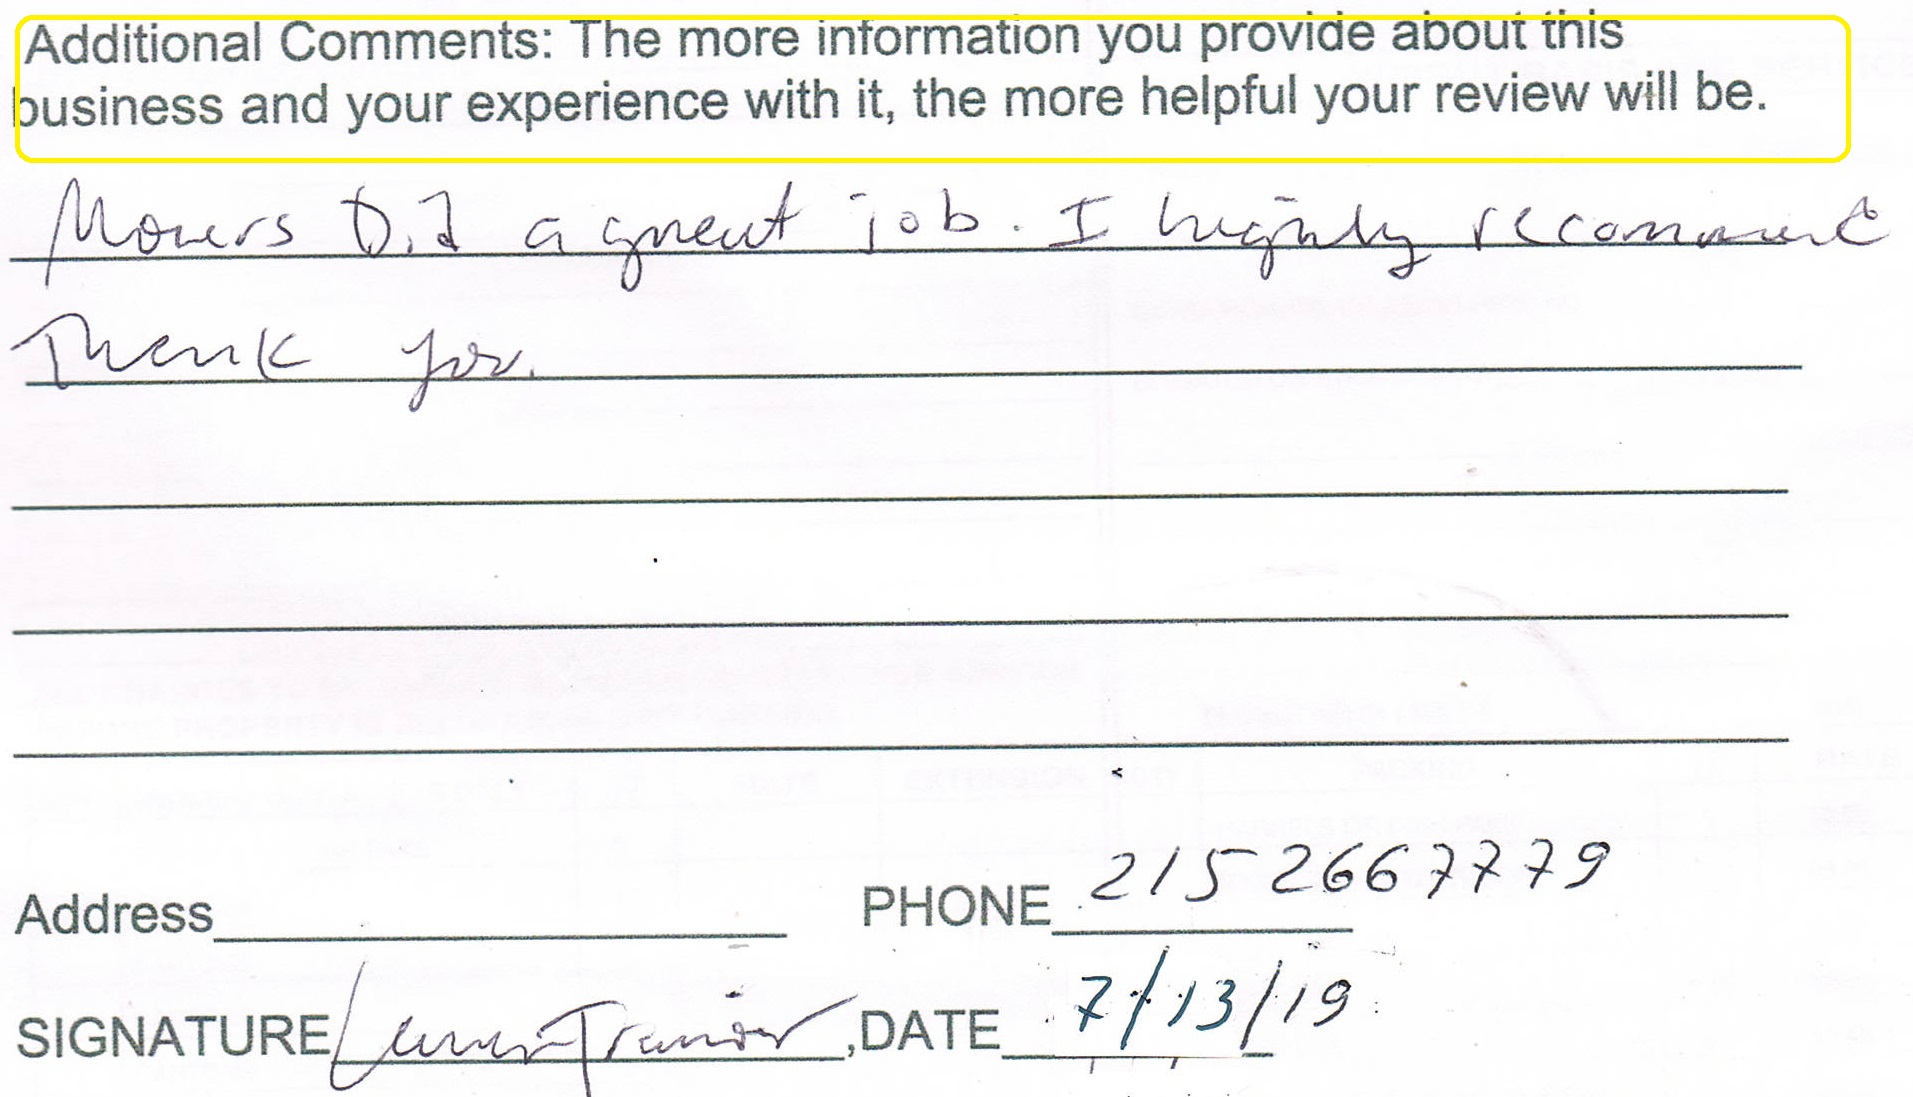 Additional Comments: The more information you provide about this
business and your experience with it, the more helpful your review will be.
Movers Did a great job. I highly recommend
Thank you.
Address
PHONE 2152667779
SIGNATURE
,DATE 7/13/19